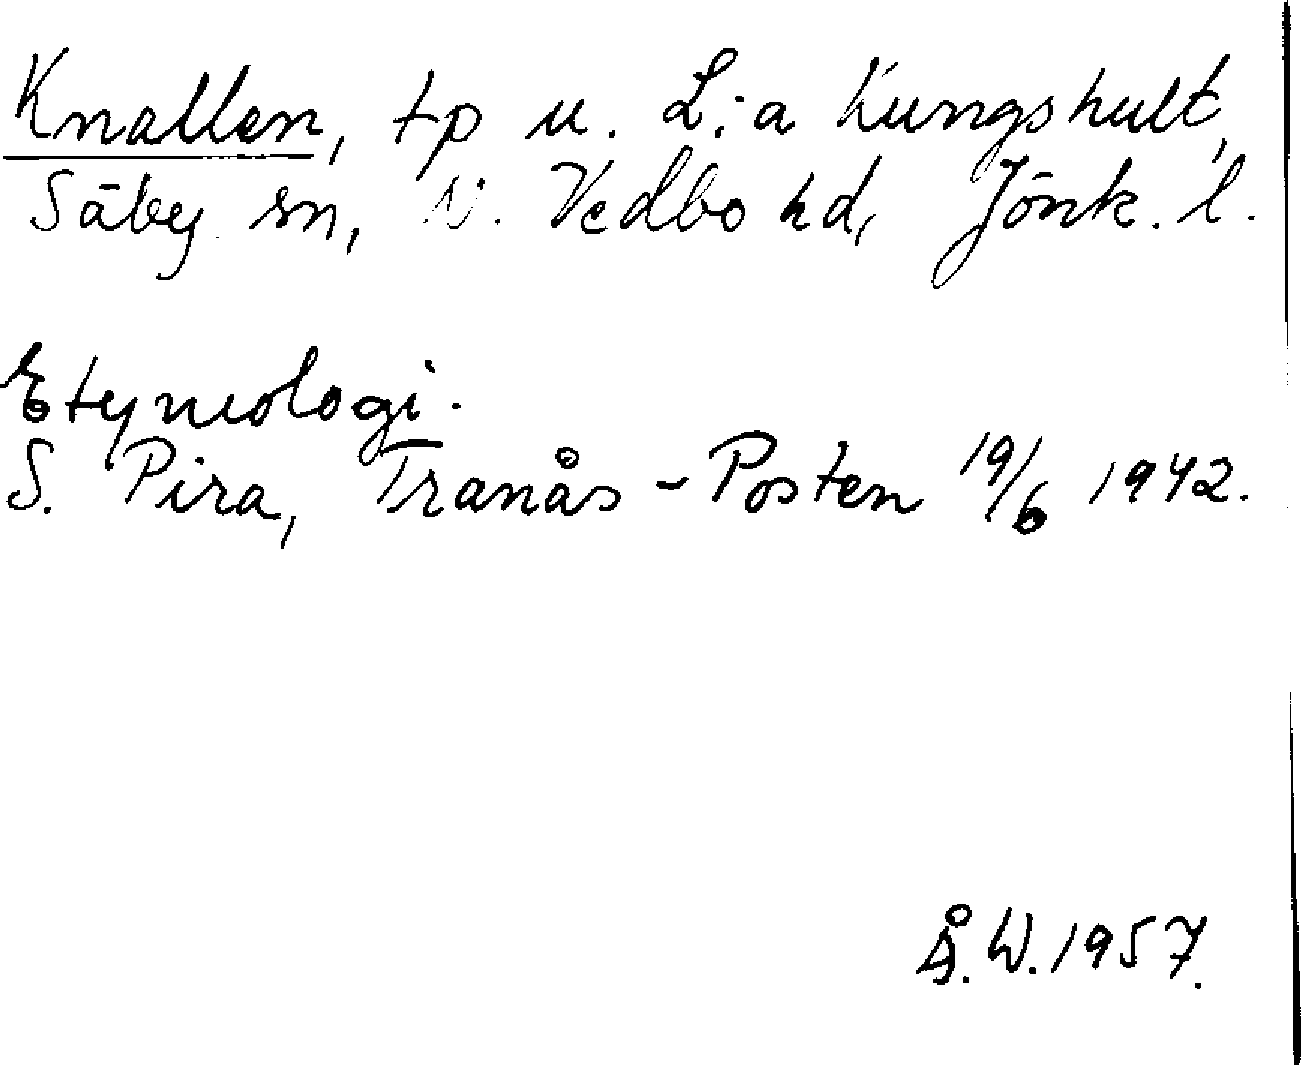 Knallen, tp u. L:a Kungshult,
Säby sn, N. Vedbo hd, Jönk. l.
Etymologi.
S. Pira, Tranås-Posten 19/6 1942.
Å.W. 1957.